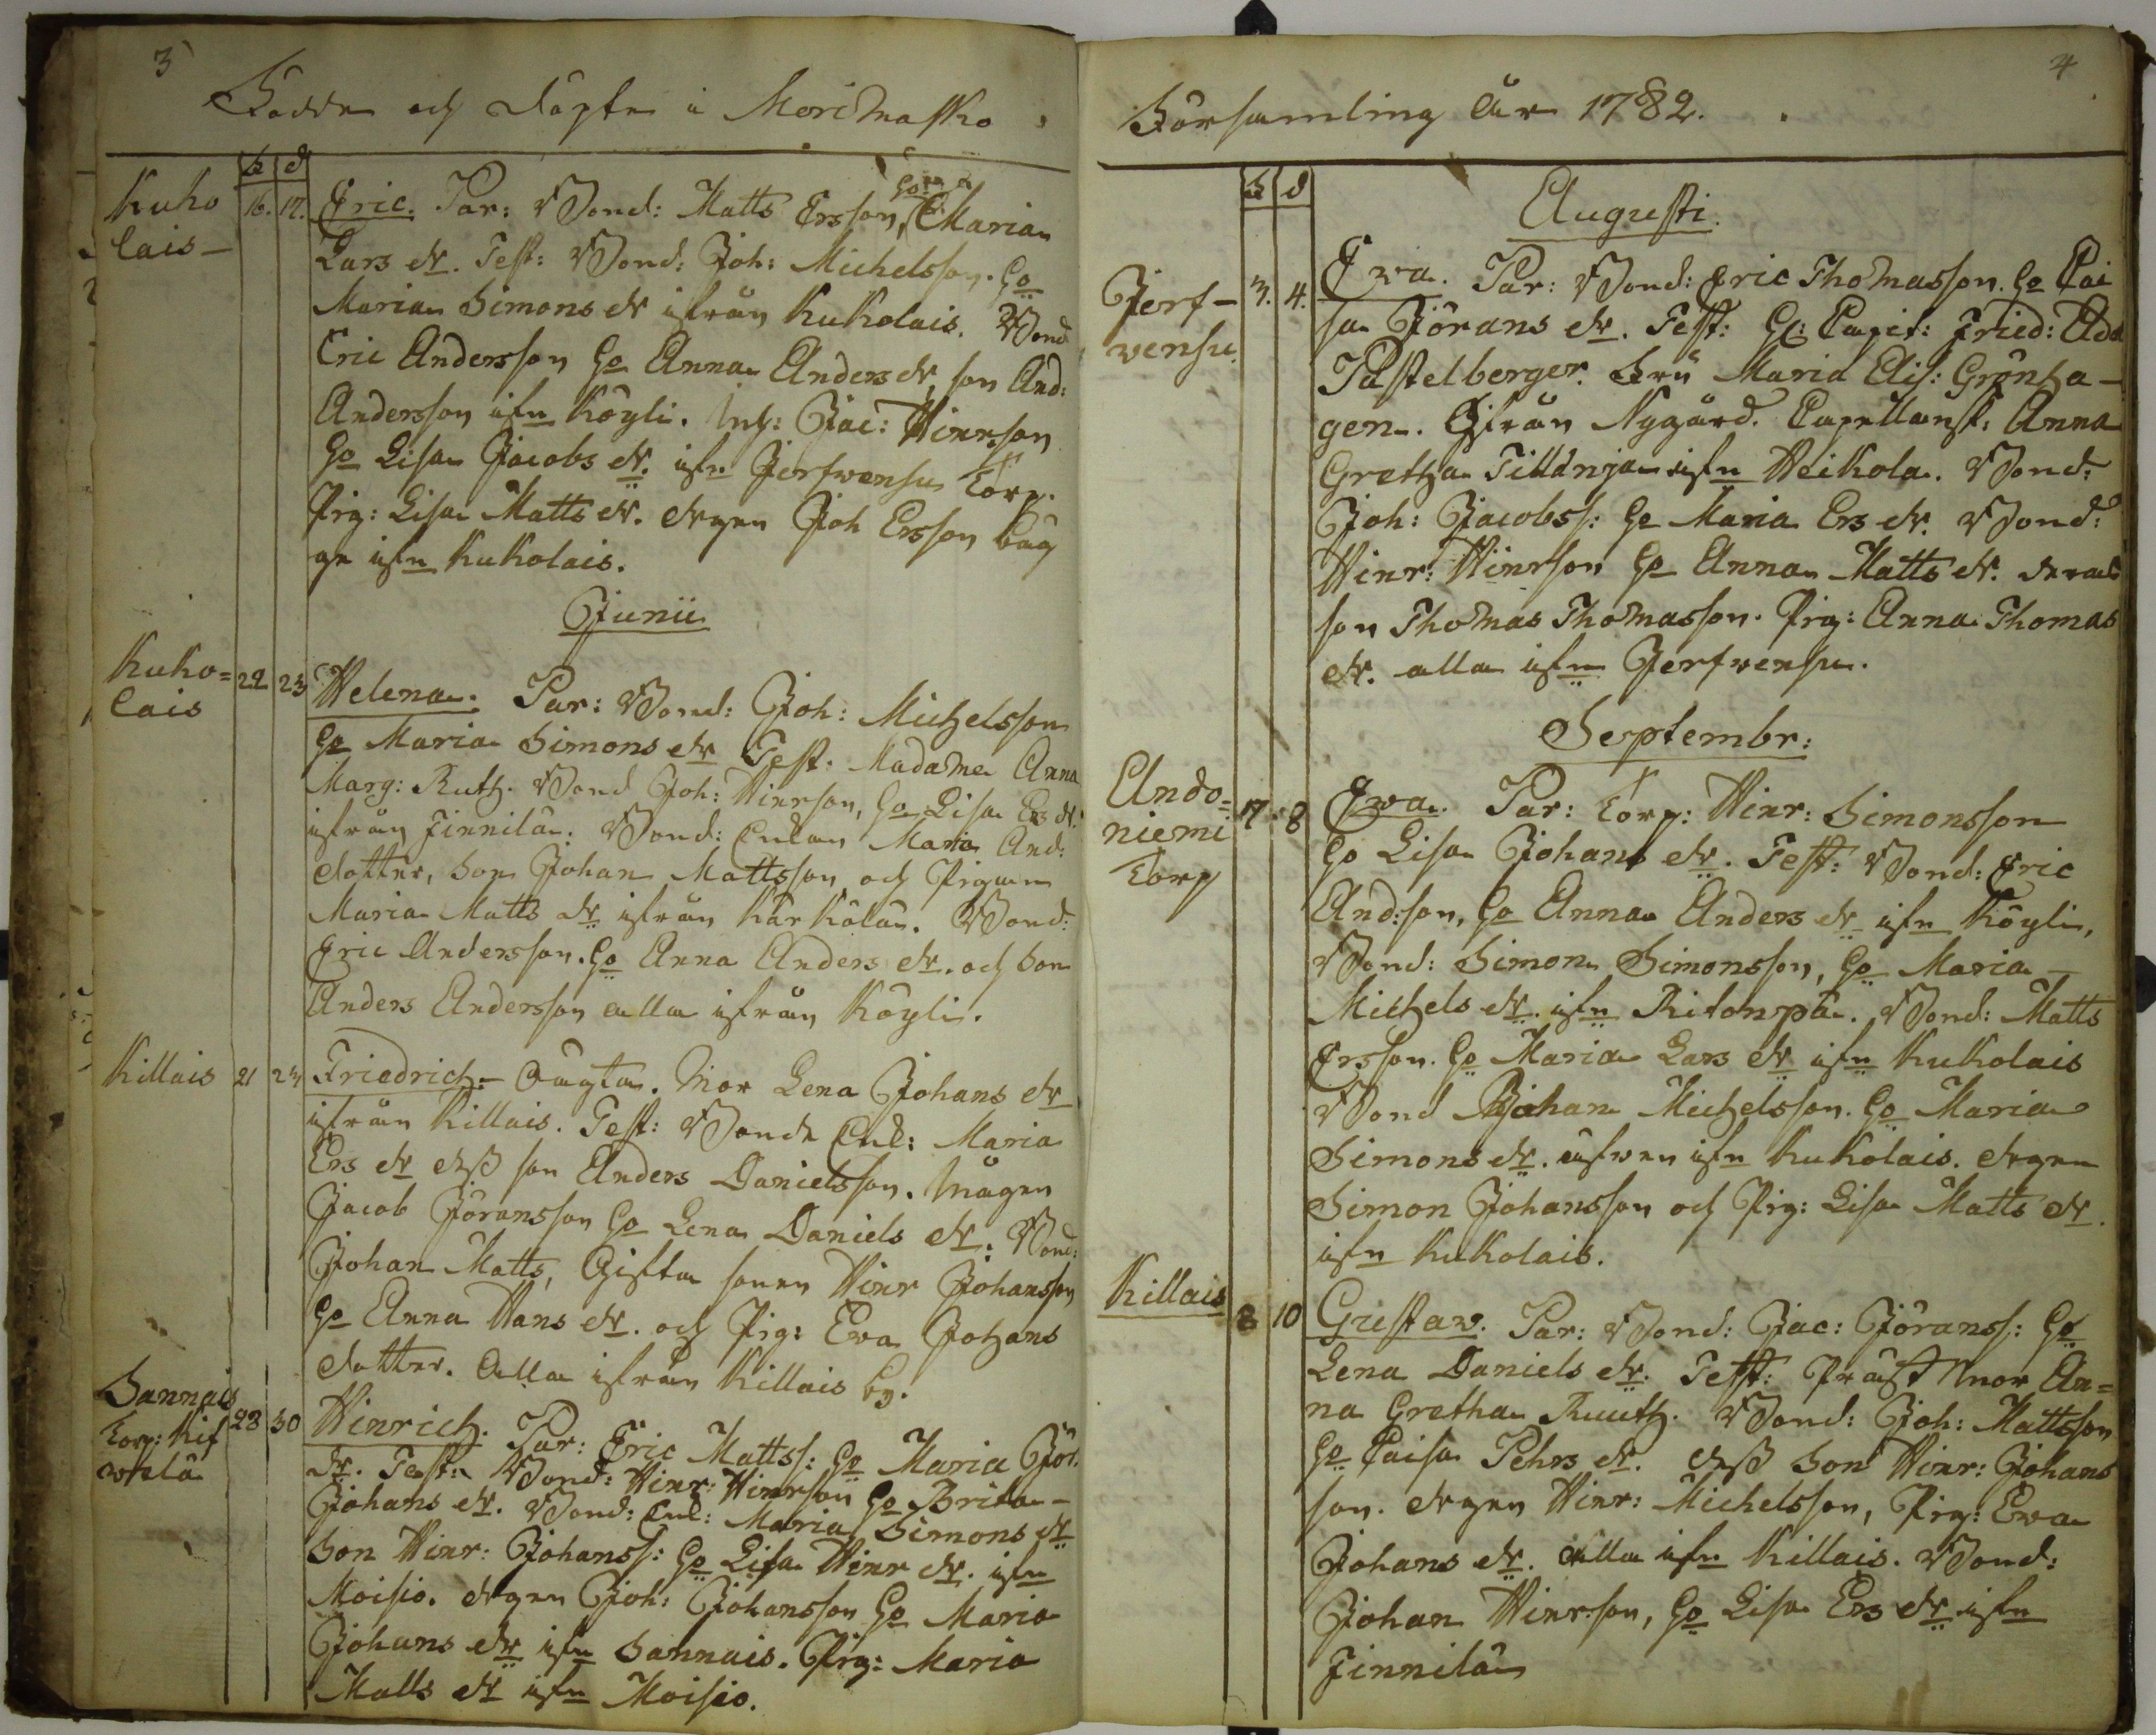 3
Födde och döpte i Mori Maskko
f d
Kuko
lais
16. 17. Eric. Par: Bond: Matts Ersson, Go Maria
Lars dr. Test: Bond: Joh: Michelsson. Go
Maria Simons dr ifrån Kukolais. Bond
Eric Andersson Go Anna Anders dr, son And:
Andersson ifrn Köyli. Inh: Jac: Hinrson
Go Lisa Jacobs dr. ifrn Jerfvensu Torp.
Pig: Lisa Matts dr. drgen Joh Ersson
ifrn Kukolais.
Junii
Kuko=
lais
22 23 Helena. Par: Bond: Joh: Michelsson
Go Maria Simons dr Test: Madame Anna
Marg: Ruth. Bond Joh: Hinrson, Go Lisa Ers dr.
ifrån Finnilä. Bond: Enkan Maria And:
dotter, Son Johan Mattsson och Pigan
Maria Matts dr ifrån Kärkölä. Bond:
Eric Andersson. Go Anna Anders dr. och Son
Anders Andersson alla ifrån Köyli.
Killais 21 23 Friedrich oägta. Mor Lena Johans dr
ifrån Killais. Test: Bonde Enk: Maria
Ers dr dess son Anders Danielsson. Mågen
Jacob Jöransson Go Lena Daniels dr. Bond:
Johan Matts, Gifta sonen Hinr Johansson
Go Anna Hans dr. och Pig: Eva Johans
dotter. Alla ifrån Killais by.
Sannais
Torp: Kif
welä
28 30 Hinrich. Par: Eric Matts: Go Maria Jör:
dr. Test: Bond: Hinr: Hinrson Go Brita
Johans dr. Bond: Enk: Maria Simons dr
Son Hinr: Johanss: Go Lisa Hinr dr. ifrn
Moisio. drgen Joh: Johansson Go Maria
Johans dr ifrn Sannais. Pig: Maria
Matts dr ifrn Moisio.
4
Församling År 1782.
f d
Augusti.
Jerf-
vensu.
3. 4. Eva. Par: Bond: Eric Thomasson. Go Cai
sa Jörans dr. Test: Capit: Fried: Ada
Pistelberger. Fru Maria Elis: Grönha-
gen. Ifrån Nygård. Capellansk: Anna
Gretha Tilldnja ifrn Heikola. Bond:
Joh: Jacobss: Go Maria Ers dr. Bond:
Hinr: Hinrson Go Anna Matts dr. deras
son Thomas Thomasson. Pig: Anna Thomas
dr. alla ifrn Jerfvensu.
Septembr:
Ando=
niemi
Torp
17. 8 Eva. Par: Torp: Hinr: Simonsson
Go Lisa Johans dr. Test: Bond: Eric
And:son, Go Anna Anders dr ifrn Köyli,
Bond: Simon Simonsson, Go Maria
Michels dr. ifrn Ritonpä. Bond: Matts
Ersson. Go Maria Lars dr ifrn Kukolais
Bond Johan Michelsson. Go Maria
Simons dr. äfven ifrn Kukolais. drgen
Simon Johansson och Pig: Lisa Matts dr.
ifrn Kukolais.
Killais 8 10 Gustav. Par: Bond: Jac: Jöranss: Go
Lena Daniels dr. Test: Präst mor An=
na Gretha Ruuth. Bond: Joh: Mattsson
Go Caisa Pehrs dr. dess Son Hinr: Johans
son. drgen Hinr: Michelsson, Pig: Eva
Johans dr. alla ifrn Killais. Bond:
Johan Hinrson, Go Lisa Ers dr ifrn
Finnilä